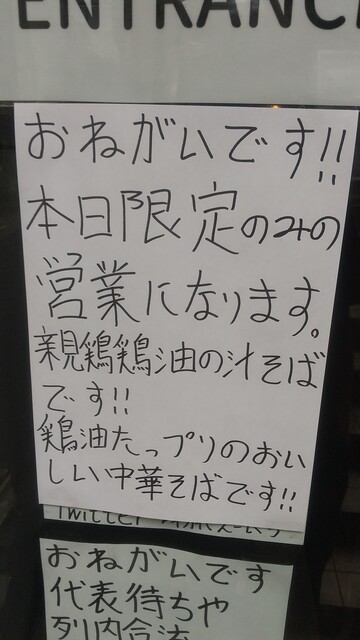 ENTRANCE
おねがいです!!
本日限定のみの
営業になります。
親鶏鶏油の汁そば
です!!
鶏油たっプリのおい
しい中華そばです!!
Twitter
おねがいです
代表待ちや
列内合流